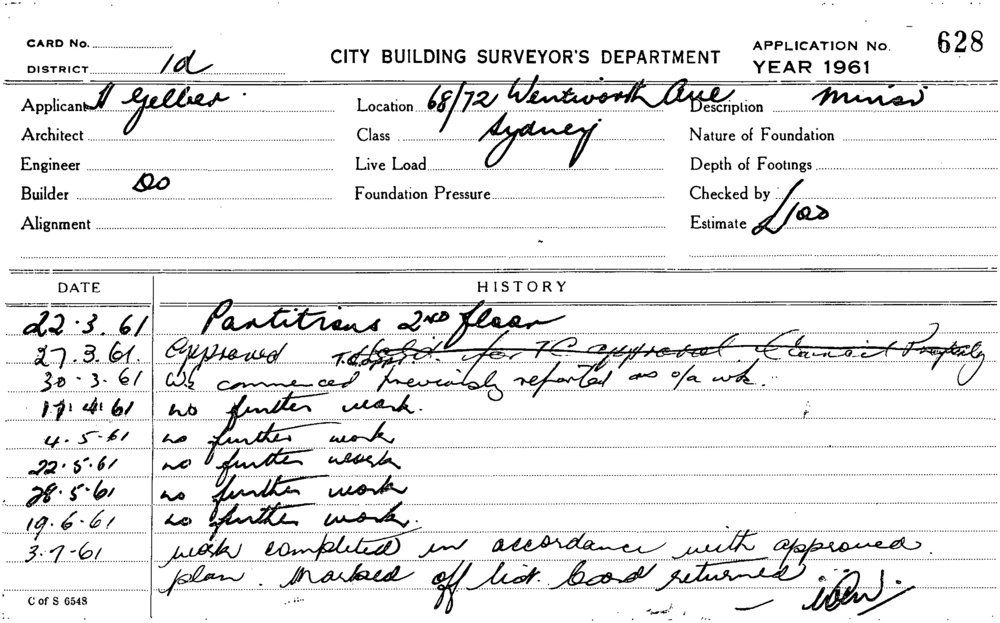 CARD No.
DISTRICT 1d
CITY BUILDING SURVEYOR'S DEPARTMENT
APPLICATION No. 628
YEAR 1961
Applicant H Gelber
Location 68/72 Wentworth Ave
Sydney
Description
Architect
Class
Nature of Foundation
Engineer
Live Load
Depth of Footings
Builder Do
Foundation Pressure
Checked by
Alignment
Estimate £100
DATE HISTORY
22.3.61 Partitions 2ND floor
27.3.61. Approved for TC approval. (Council Property
30.3.61 Wk commenced previously reported as o/a wk.
17.4.61 no further work.
4.5.61 no further work
22.5.61 no further work
28.5.61 no further work
19.6.61 no further work.
3.7.61 work completed in accordance with approved
plan. Marked off list. Card returned
C of S 6548